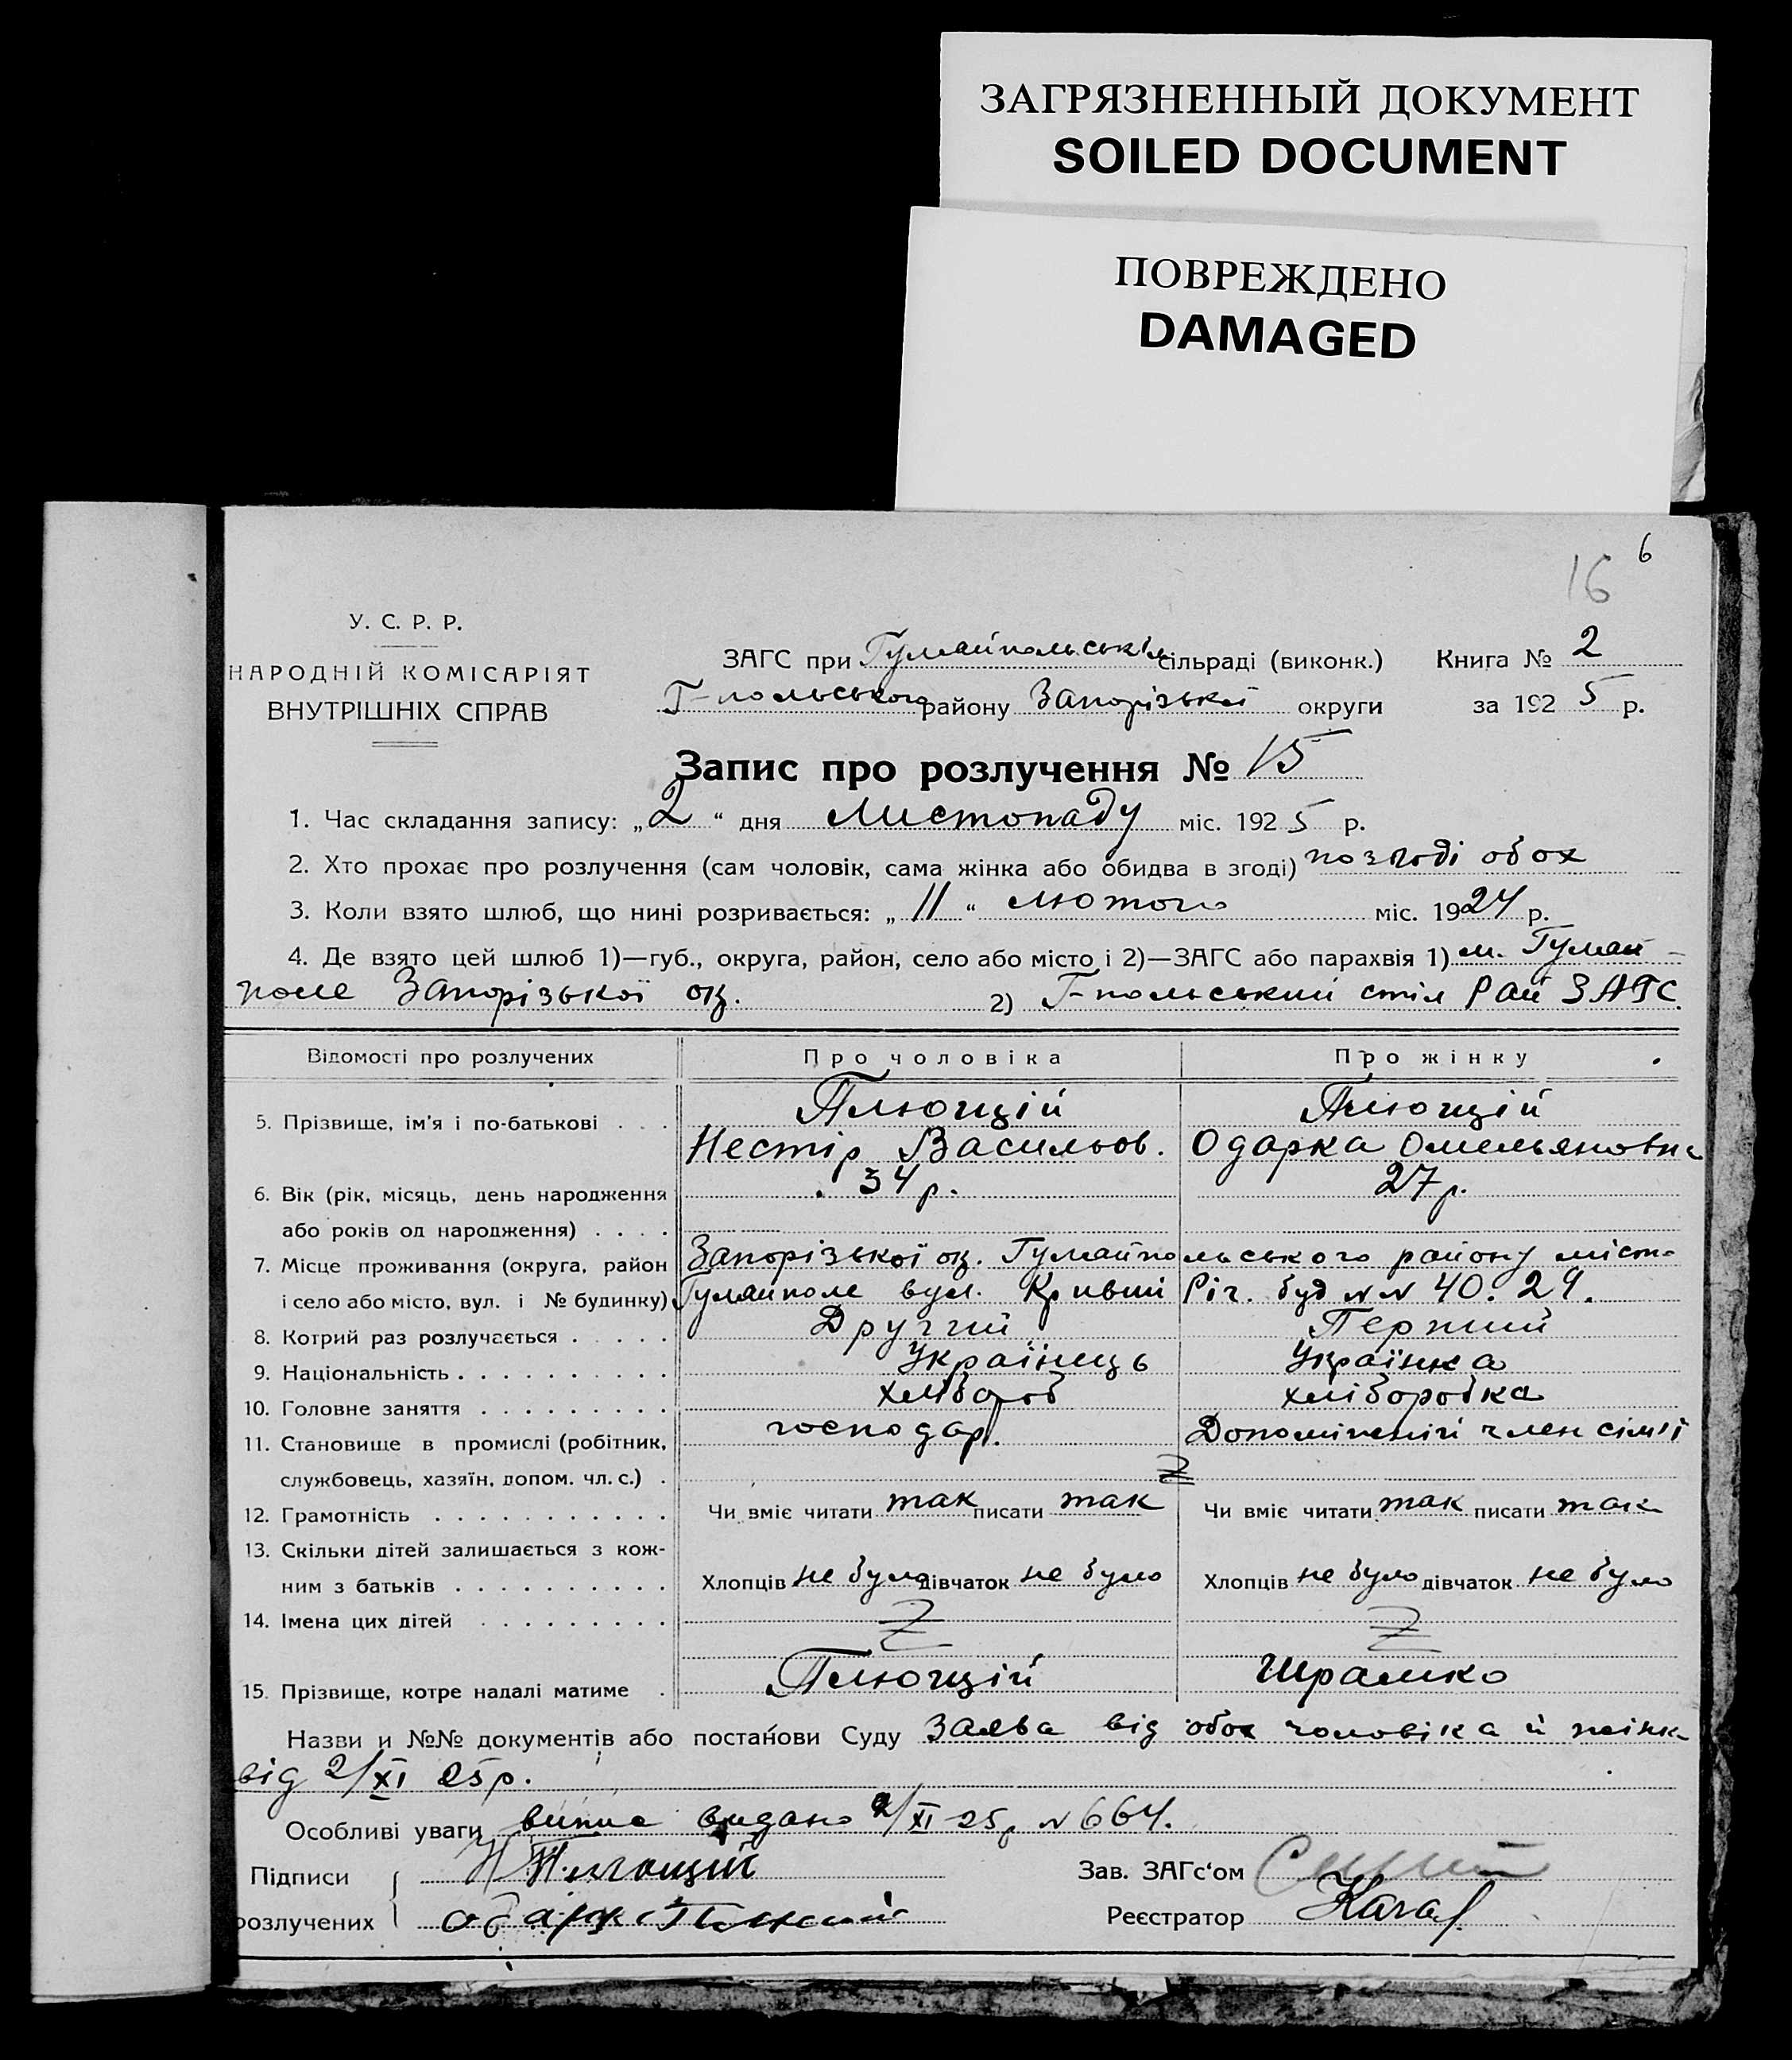 ЗАГРЯЗНЕННЫЙ ДОКУМЕНТ
SOILED DOCUMENT
ПОВРЕЖДЕНО
DAMAGED
6
16
У. С. Р. Р.
НАРОДНІЙ КОМІСАРІЯТ
ВНУТРІШНІХ СПРАВ
ЗАГС при Гуляйпольській сільраді (виконк.) Книга № 2
Г-польського району Запорізької округи за 1925 р.
Запис про розлучення № 15
1. Час складання запису: „2“ дня Листопаду міс. 1925 р.
2. Хто прохає про розлучення (сам чоловік, сама жінка або обидва в згоді) по згоді обох
3. Коли взято шлюб, що нині розривається: „11“ лютого міс. 1924 р.
4. Де взято цей шлюб 1)—губ., округа, район, село або місто і 2)—ЗАГС або парахвія 1) м. Гуляй-
поле Запорізької ок. 2) Г-польський стіл Рай ЗАГС.
Відомості про розлучених Про чоловіка Про жінку
5. Прізвище, ім'я і по-батькові . . . Плющій Плющій
Нестір Васильов. Одарка Омельяновна
6. Вік (рік, місяць, день народження 34 р. 27 р.
або років од народження) . . . .
7. Місце проживання (округа, район Запорізької ок. Гуляйпольського району місто
і село або місто, вул. і № будинку) Гуляйполе вул. Кривий Ріг. буд № № 40. 29.
8. Котрий раз розлучається . . . . . Другий Перший
9. Національність . . . . . . . . . . Українець Українка
10. Головне заняття . . . . . . . . . хлібороб хліборобка
11. Становище в промислі (робітник, господар. Допоміжний член сім'ї
службовець, хазяїн, допом. чл. с.) .
12. Грамотність . . . . . . . . . . . Чи вміє читати так писати так Чи вміє читати так писати так
13. Скільки дітей залишається з кож-
ним з батьків . . . . . . . . . . Хлопців не було дівчаток не було Хлопців не було дівчаток не було
14. Імена цих дітей . . . . . . . . .
15. Прізвище, котре надалі матиме . Плющій Шрамко
Назви и №№ документів або постанови Суду Заява від обох чоловіка й жінки
від 2/XI 25 р.
Особливі уваги випис видано 2/XI 25 р № 664.
Підписи Н Плющий Зав. ЗАГс‘ом
розлучених Одарка Плющий Реєстратор